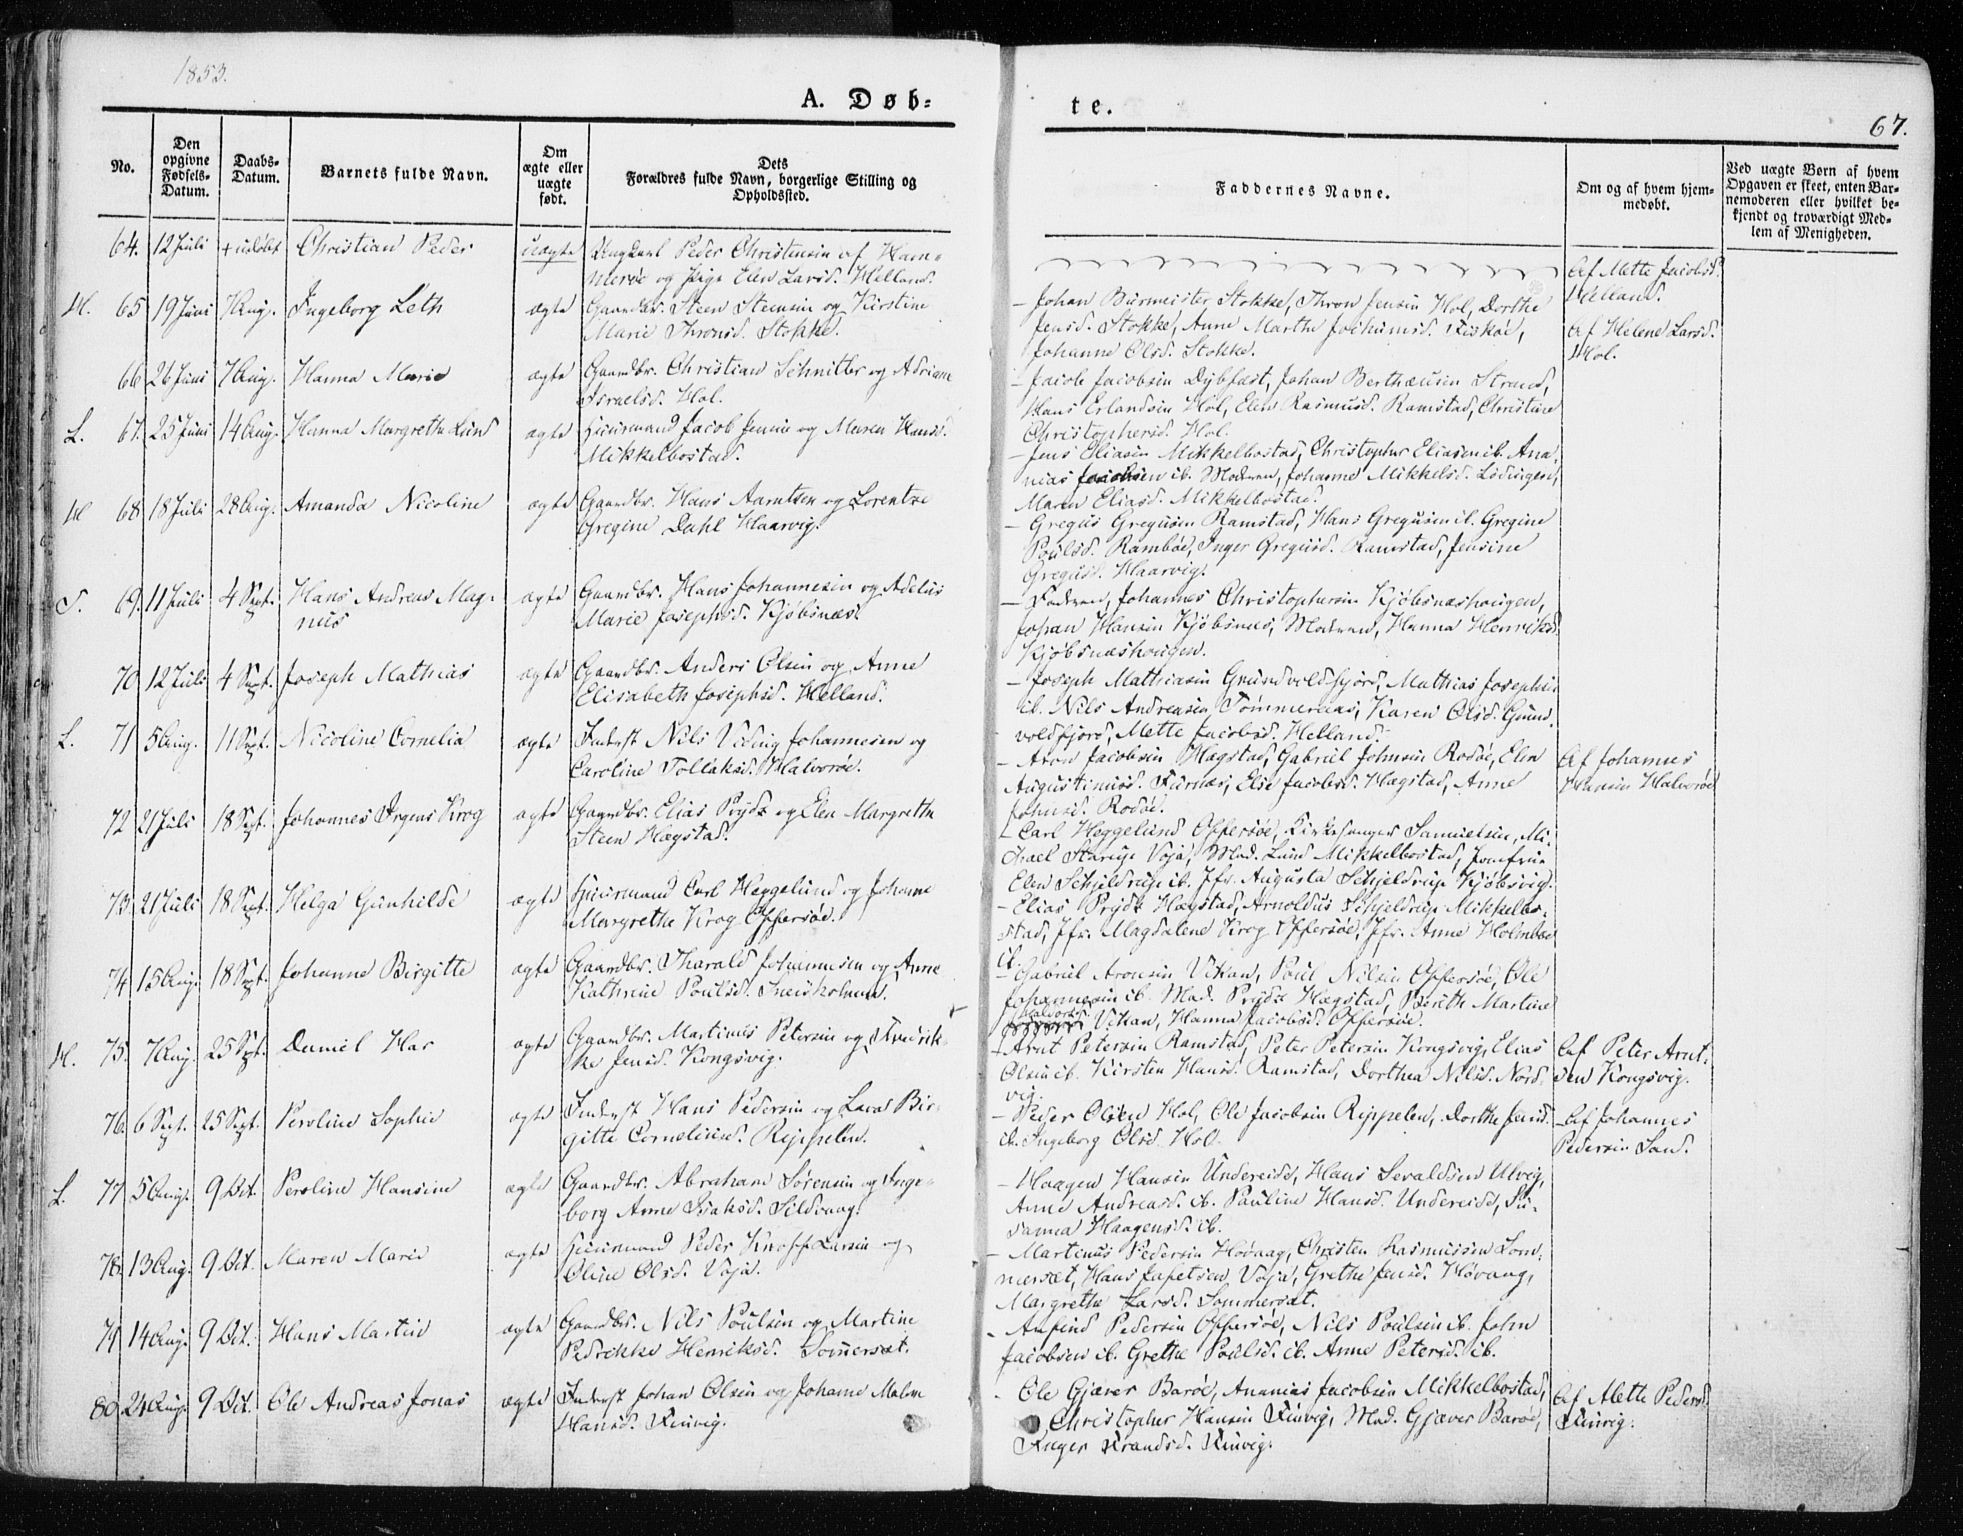 1853.
A. Døb-
te.
67.
No.
Den opgivne Fødsels-Datum.
Daabs-Datum.
Barnets fulde Navn.
Om ægte eller uægte født.
Dets Forældres fulde Navn, borgerlige Stilling og Opholdssted.
Faddernes Navne.
Om og af hvem hjem-medøbt.
Ved uægte Børn af hvem Opgaven er skeet, enten Bar-nemoderen eller hvilket be-kjendt og troværdigt Med-lem af Menigheden.
64. 12 Juli + udøbt Christian Peder uægte Ungkarl Peder Christensen af Ham-
merøe og Pige Elen Larsd. Helland.
Af Mette Jacobsd.
Helland.
H. 65 19 Juni 7 Aug. Ingeborg Leth ægte Gaardbr. Steen Steensen og Kirstine
Marie Thronsd. Stokke.
- Johan Burmeister Stokke, Thron Jensen Hol, Dorthe
Jensd. Stokke, Anne Marthe Jochumsd. Fiskøe,
Johanne Olsd. Stokke.
Af Helene Larsd.
Hol.
66 26 Juni 7 Aug. Hanna Marie ægte Gaardbr. Christian Schnitler og Adriane
Israelsd. Hol.
- Jacob Jacobsen Dybfæst, Johan Berthæusen Strand,
Hans Erlandsen Hol, Elen Rasmusd. Ramstad, Christine
Christophersd. Hol.
L. 67. 25 Juni 14 Aug. Hanna Margrethe Lund ægte Huusmand Jacob Jensen og Maren Hansd.
Mikkelbostad.
- Jens Eliasen Mikkelbostad, Christopher Eliasen ib. Ana-
nias Jacobsen ib. Moderen, Johanne Mikkelsd. Lødingen,
Maren Eliasd. Mikkelbostad.
H 68 18 Juli 28 Aug. Amanda Nicoline ægte Gaardbr. Hans Aarntsen og Lorentze
Gregine Dahl Haarvig.
- Gregus Gregusen Ramstad, Hans Gregusen ib. Gregine
Poulsd. Rambøe, Inger Gregusd. Ramstad, Jensine
Gregusd. Haarvig.
S. 69. 11 Juli 4 Sept. Hans Andreas Mag-
nus
ægte Gaardbr. Hans Johannesen og Adelus
Marie Josephsd. Kjøbsnæs.
- Faderen, Johannes Christophersen Kjøbsnæshougen,
Johan Hansen Kjøbsnæs, Moderen, Hanna Henriksd.
Kjøbsnæshougen.
70 12 Juli 4 Sept. Joseph Mathias ægte Gaardbr. Anders Olsen og Anne
Elisabeth Josephsd. Helland.
- Joseph Mathiasen Grundvoldfjord, Mathias Josephsen
ib. Nils Andreasen Tømmeraas, Karen Olsd. Grund-
voldfjord, Mette Jacobsd. Helland.
L. 71 5 Aug. 11 Sept. Nicoline Cornelia ægte Inderst Nils Viding Johannesen og
Caroline Tollaksd. Halvorøe.
- Aron Jacobsen Hægstad, Gabriel Johnsen Rodøe, Elen
Augustinusd. Furnæs, Else Jacobsd. Hægstad, Anne
Johnsd. Rodøe.
Af Johannes
Hansen Halvorøe
72 21 Juli 18 Sept. Johannes Irgens Krog ægte Gaardbr. Elias Prydz og Elen Margrethe
Steen Hægstad.
- Carl Heggelund Offersøe, Kirkesanger Samuelsen, Mi-
chael Storup Voja, Mad. Lund Mikkelbostad, Jomfrue
Elen Schjeldrup ib. Jfr. Augusta Schjeldrup Kjøbsvig.
73. 21 Juli 18 Sept. Helga Gunhilde ægte Huusmand Carl Heggelund og Johanne
Margrethe Krog Offersøe.
- Elias Prydz Hægstad, Arnoldus Schjeldrup Mikkelbo-
stad, Jfr. Magdalene Krog Offersøe, Jfr. Anne Holmboe
ib.
74 15 Aug. 18 Sept. Johanne Birgitte ægte Gaardbr. Tharald Johannesen og Anne
Kathrine Poulsd.
- Gabriel Aronsen Vekan, Poul Nilsen Offersøe, Ole
Johannesen ib. Mad. Prydz Hægstad, Bereth Martine
Halvorsd. Vekan, Hanna Jacobsd. Offersøe.
H. 75. 7 Aug. 25 Sept. Daniel Har ægte Gaardbr. Martinus Petersen og Fredrik-
ke Jensd. Kongsvig.
- Arnt Petersen Ramstad, Peter Petersen Kongsvig, Elias
Olsen ib. Kirsten Hansd. Ramstad, Dorthea Nilsd. Nord-
vig.
Af Peter Arnt-
sen Kongsvig.
76. 6 Sept. 25 Sept. Peroline Sophie ægte Inderst Hans Pedersen og Lava Bir-
gitte Corneliusd. Reppelen.
- Peder Olsen Hol, Ole Jacobsen Reppelen, Dorthe Jensd.
ib. Ingeborg Olsd. Hol.
Af Johannes
Pedersen Sand.
L. 77. 5 Aug. 9 Oct. Peroline Hansine ægte Gaardbr. Abraham Sørensen og Inge-
borg Anne Isaksd. Sildvaag.
- Haagen Hansen Undereidd, Hans Sevaldsen Utvig,
Anne Andreasd. ib. Pauline Hansd. Undereidd, Su-
sanna Haagensd. ib.
78. 13 Aug. 9 Oct. Maren Marie ægte Huusmand Peder Knoff Larsen og
Oline Olsd. Voja.
- Martinus Pedersen Høvaag, Christen Rasmussen Som-
mersæt, Hans Jafetsen Voja, Grethe Jensd. Høvaag,
Margrethe Larsd. Sommersæt.
79 14 Aug. 9 Oct. Hans Martin ægte Gaardbr. Nils Poulsen og Martine
Pedrikke Henriksd. Sommersæt.
- Anfind Pedersen Offersøe, Nils Poulsen ib. John
Jacobsen ib. Grethe Poulsd. ib. Anne Petersd. ib.
80 24 Aug. 9 Oct. Ole Andreas Jonas ægte Inderst Johan Olsen og Johanne Malene
Hansd. Finvig.
- Ole Gjæver Barøe, Ananias Jacobsen Mikkelbostad,
Christopher Hansen Finvig, Mad. Gjæver Barøe,
Inger Frandsd. Finvig.
Af Mette Pedersd.
Finvig.